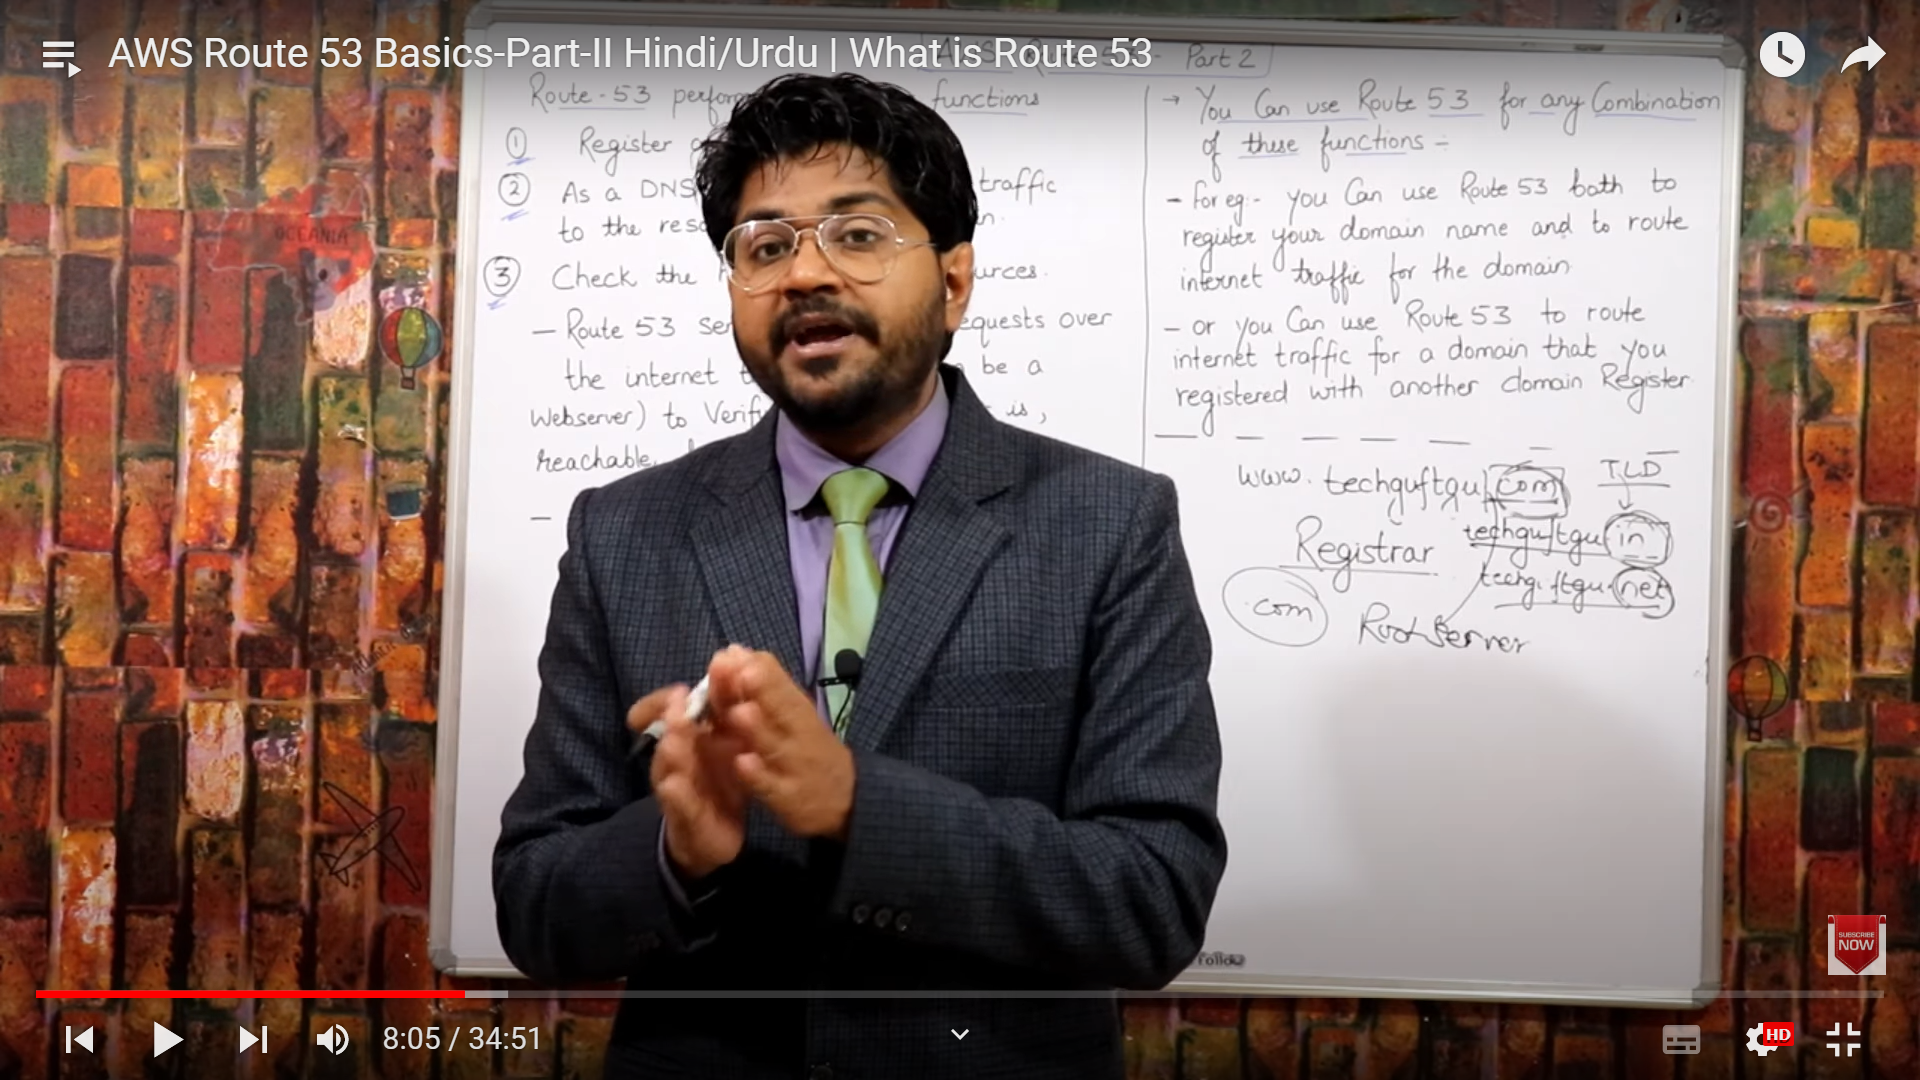 AWS Route 53 Basics-Part-II Hindi/Urdu | What is Route 53
Part 2
Route-53 functions
① Register
② As a DNS traffic
to the
③ Check the
— Route 53 requests over
the internet be a
Webserver) to is,
reachable,
—
→ You Can use Route 53 for any Combination
of these functions -
- for eg:- you Can use Route 53 both to
register your domain name and to route
internet traffic for the domain
- or you Can use Route 53 to route
internet traffic for a domain that you
registered with another domain Register
www. techguftgu.com TLD
Registrar techguftgu in
techguftgu.net
.com Root Server
OCEANIA
SUBSCRIBE
NOW
follow
8:05 / 34:51
HD